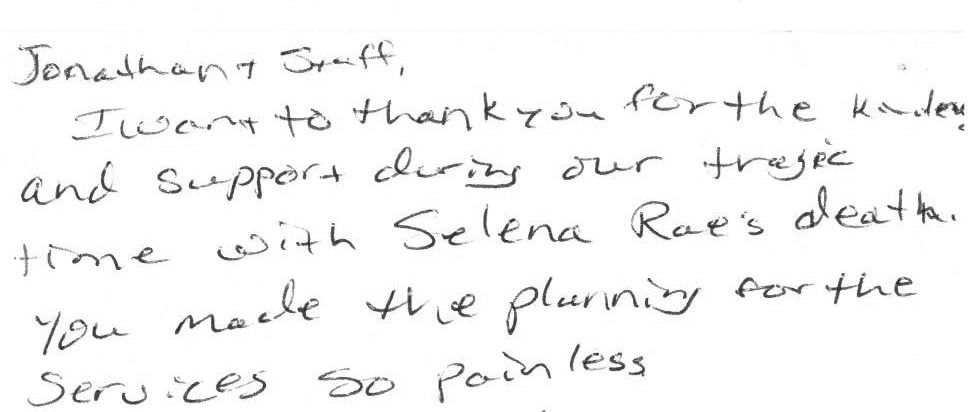 Jonathan + Staff,
I want to thank you for the
and support during our tragic
time with Selena Rae's death.
You made the planning for the
Services so painless